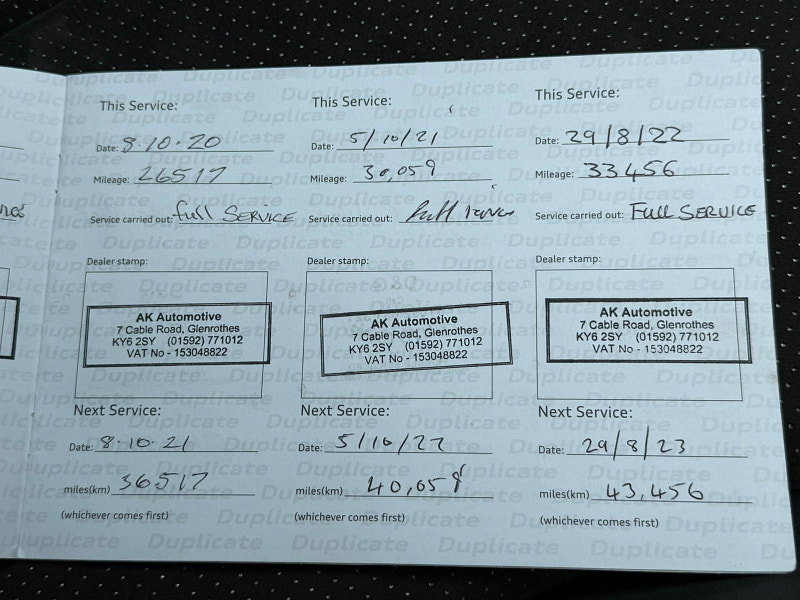 This Service:
Date: 8.10.20
Mileage: 26517
Service carried out: full SERVICE
Dealer stamp:
AK Automotive
7 Cable Road, Glenrothes
KY6 2SY (01592) 771012
VAT No - 153048822
Next Service:
Date: 8.10.21
miles(km) 36517
(whichever comes first)
This Service:
Date: 5/10/21
Mileage: 30,059
Service carried out: full
Dealer stamp:
AK Automotive
7 Cable Road, Glenrothes
KY6 2SY (01592) 771012
VAT No - 153048822
Next Service:
Date: 5/10/22
miles(km) 40,059
(whichever comes first)
This Service:
Date: 29/8/22
Mileage: 33456
Service carried out: FULL SERVICE
Dealer stamp:
AK Automotive
7 Cable Road, Glenrothes
KY6 2SY (01592) 771012
VAT No - 153048822
Next Service:
Date: 29/8/23
miles(km) 43,456
(whichever comes first)
Duplicate